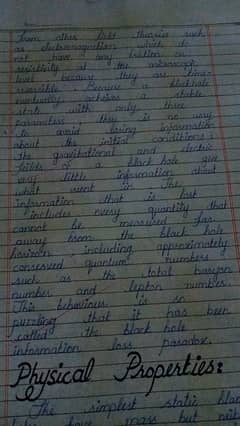 from other field theories such
as electromagnetism which do
not have any friction or
resistivity at the microscopic
level because they are time-
reversible. Because a blackhole
eventually achieves a stable
state with only three
parameters, there is no way
to avoid losing information
about the initial conditions:
the gravitational and electric
fields of a black hole give
very little information about
what went in. The
information that is lost
includes every quantity that
cannot be measured far
away from the black hole
horizon, including approximately
conserved quantum numbers
such as the total baryon
number and lepton number.
This behaviour is so
puzzling that it has been
called the black hole
information loss paradox.
Physical Properties:
The simplest static black
have mass but neither